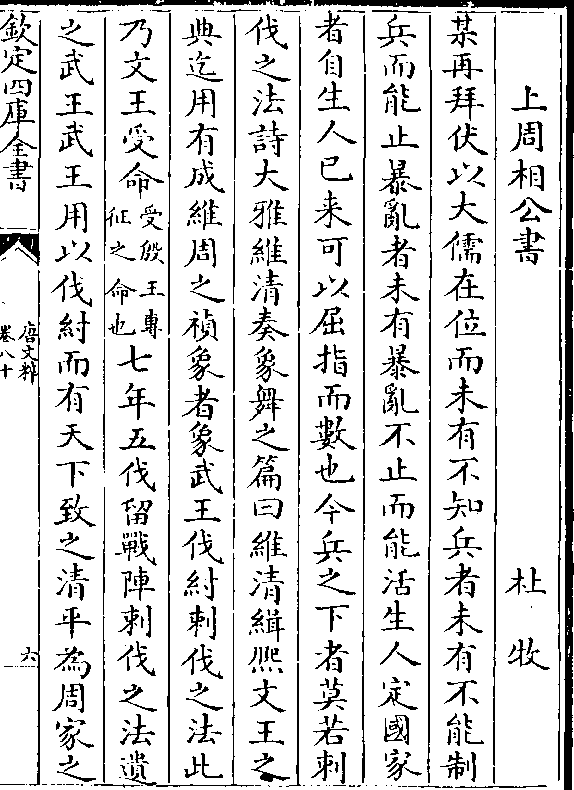 上周相公書 杜牧
某再拜伏以大儒在位而未有不知兵者未有不能制
兵而能止暴亂者未有暴亂不止而能活生人定國家
者自生人已来可以屈指而數也今兵之下者莫若刺
伐之法詩大雅維清奏象舞之篇曰維清緝熈文王之
典迄用有成維周之禎象者象武王伐紂刺伐之法此
乃文王受命受殷王專征之命也七年五伐留戰陣刺伐之法遺
之武王武王用以伐紂而有天下致之清平為周家之
欽定四庫全書
唐文粹
卷八十
六